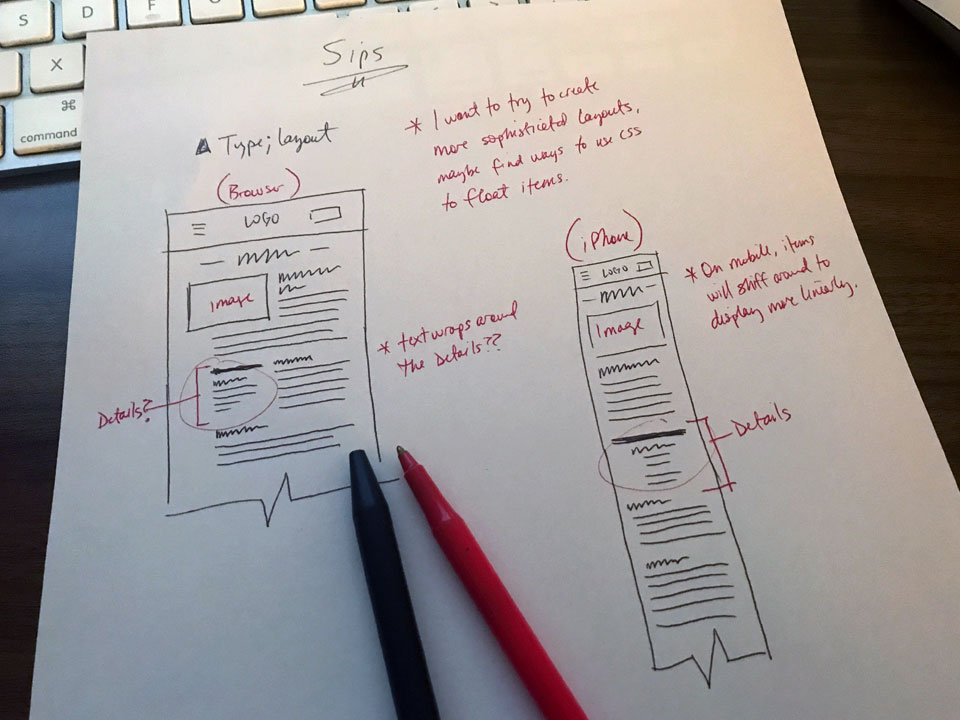 S
D
F
X
⌘
command
Sips
Type; layout
* I want to try to create
more sophisticted layouts,
maybe find ways to use css
to float items.
(Browser)
LOGO
image
* text wraps around
the Details??
Details?
(iPhone)
LOGO
Image
* On mobile, items
will shift around to
display more linearly.
Details